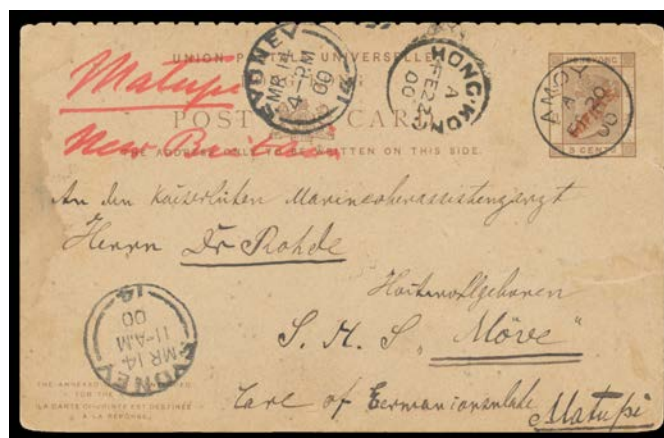 UNION POSTALE UNIVERSELLE
HONG KONG
POST CARD
THE ADDRESS ONLY TO BE WRITTEN ON THIS SIDE.
5 CENTS
Matupi
New Britain
SYDNEY
MR 14
4-PM
00
14
HONG-KONG
A
FE 22
00
AMOY
A
FE 20
00
An den Kaiserlichen Marineoberassistenzarzt
Herrn Dr Rohde
Hochwohlgeboren
S. M. S. „Möve"
Care of German consulate Matupi
SYDNEY
MR 14
11-AM
00
14
THE ANNEXED
FOR THE
LA CARTE CI-JOINTE EST DESTINÉE
À LA RÉPONSE.